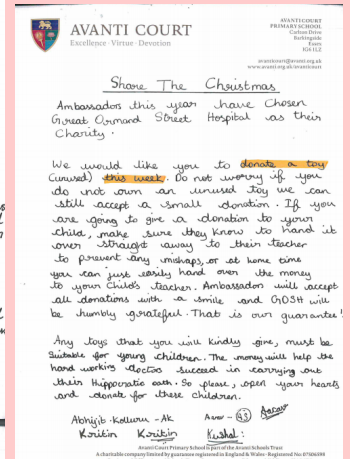 AVANTI COURT
Excellence · Virtue · Devotion
AVANTI COURT
PRIMARY SCHOOL
Carlton Drive
Barkingside
Essex
IG6 1LZ
avanticourt@avanti.org.uk
www.avanti.org.uk/avanticourt
Share The Christmas
Ambassadors this year have Chosen
Great Ormand Street Hospital as their
Charity.
We would like you to donate a toy
(unused) this week. Do not worry if you
do not own an unused toy we can
still accept a small donation. If you
are going to give a donation to your
child, make sure they know to hand it
over straight away to their teacher
to prevent any mishaps, or at home time
you can just easily hand over the money
to your child's teacher. Ambassadors will accept
all donations with a smile and GOSH will
be humbly grateful. That is our guarantee!
Any toys that you will kindly give, must be
Suitable for young children. The money will help the
hard working doctors succeed in carrying out
their Hippocratic oath. So please, open your hearts
and donate for these children.
Abhijit · Kolluru - Ak
Kritin Kritin Kushal:
Avanti Court Primary School is part of the Avanti Schools Trust
A charitable company limited by guarantee registered in England & Wales · Registered No: 07506598